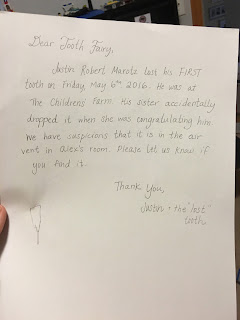 Dear Tooth Fairy,
Justin Robert Marote lost his FIRST
tooth on Friday, May 6th 2016. He was at
The Childrens Farm. His sister accidentally
dropped it when she was congratulating him.
We have suspicions that it is in the air
vent in Alex's room. Please let us know if
you find it.
Thank You,
Justin + the "lost"
tooth